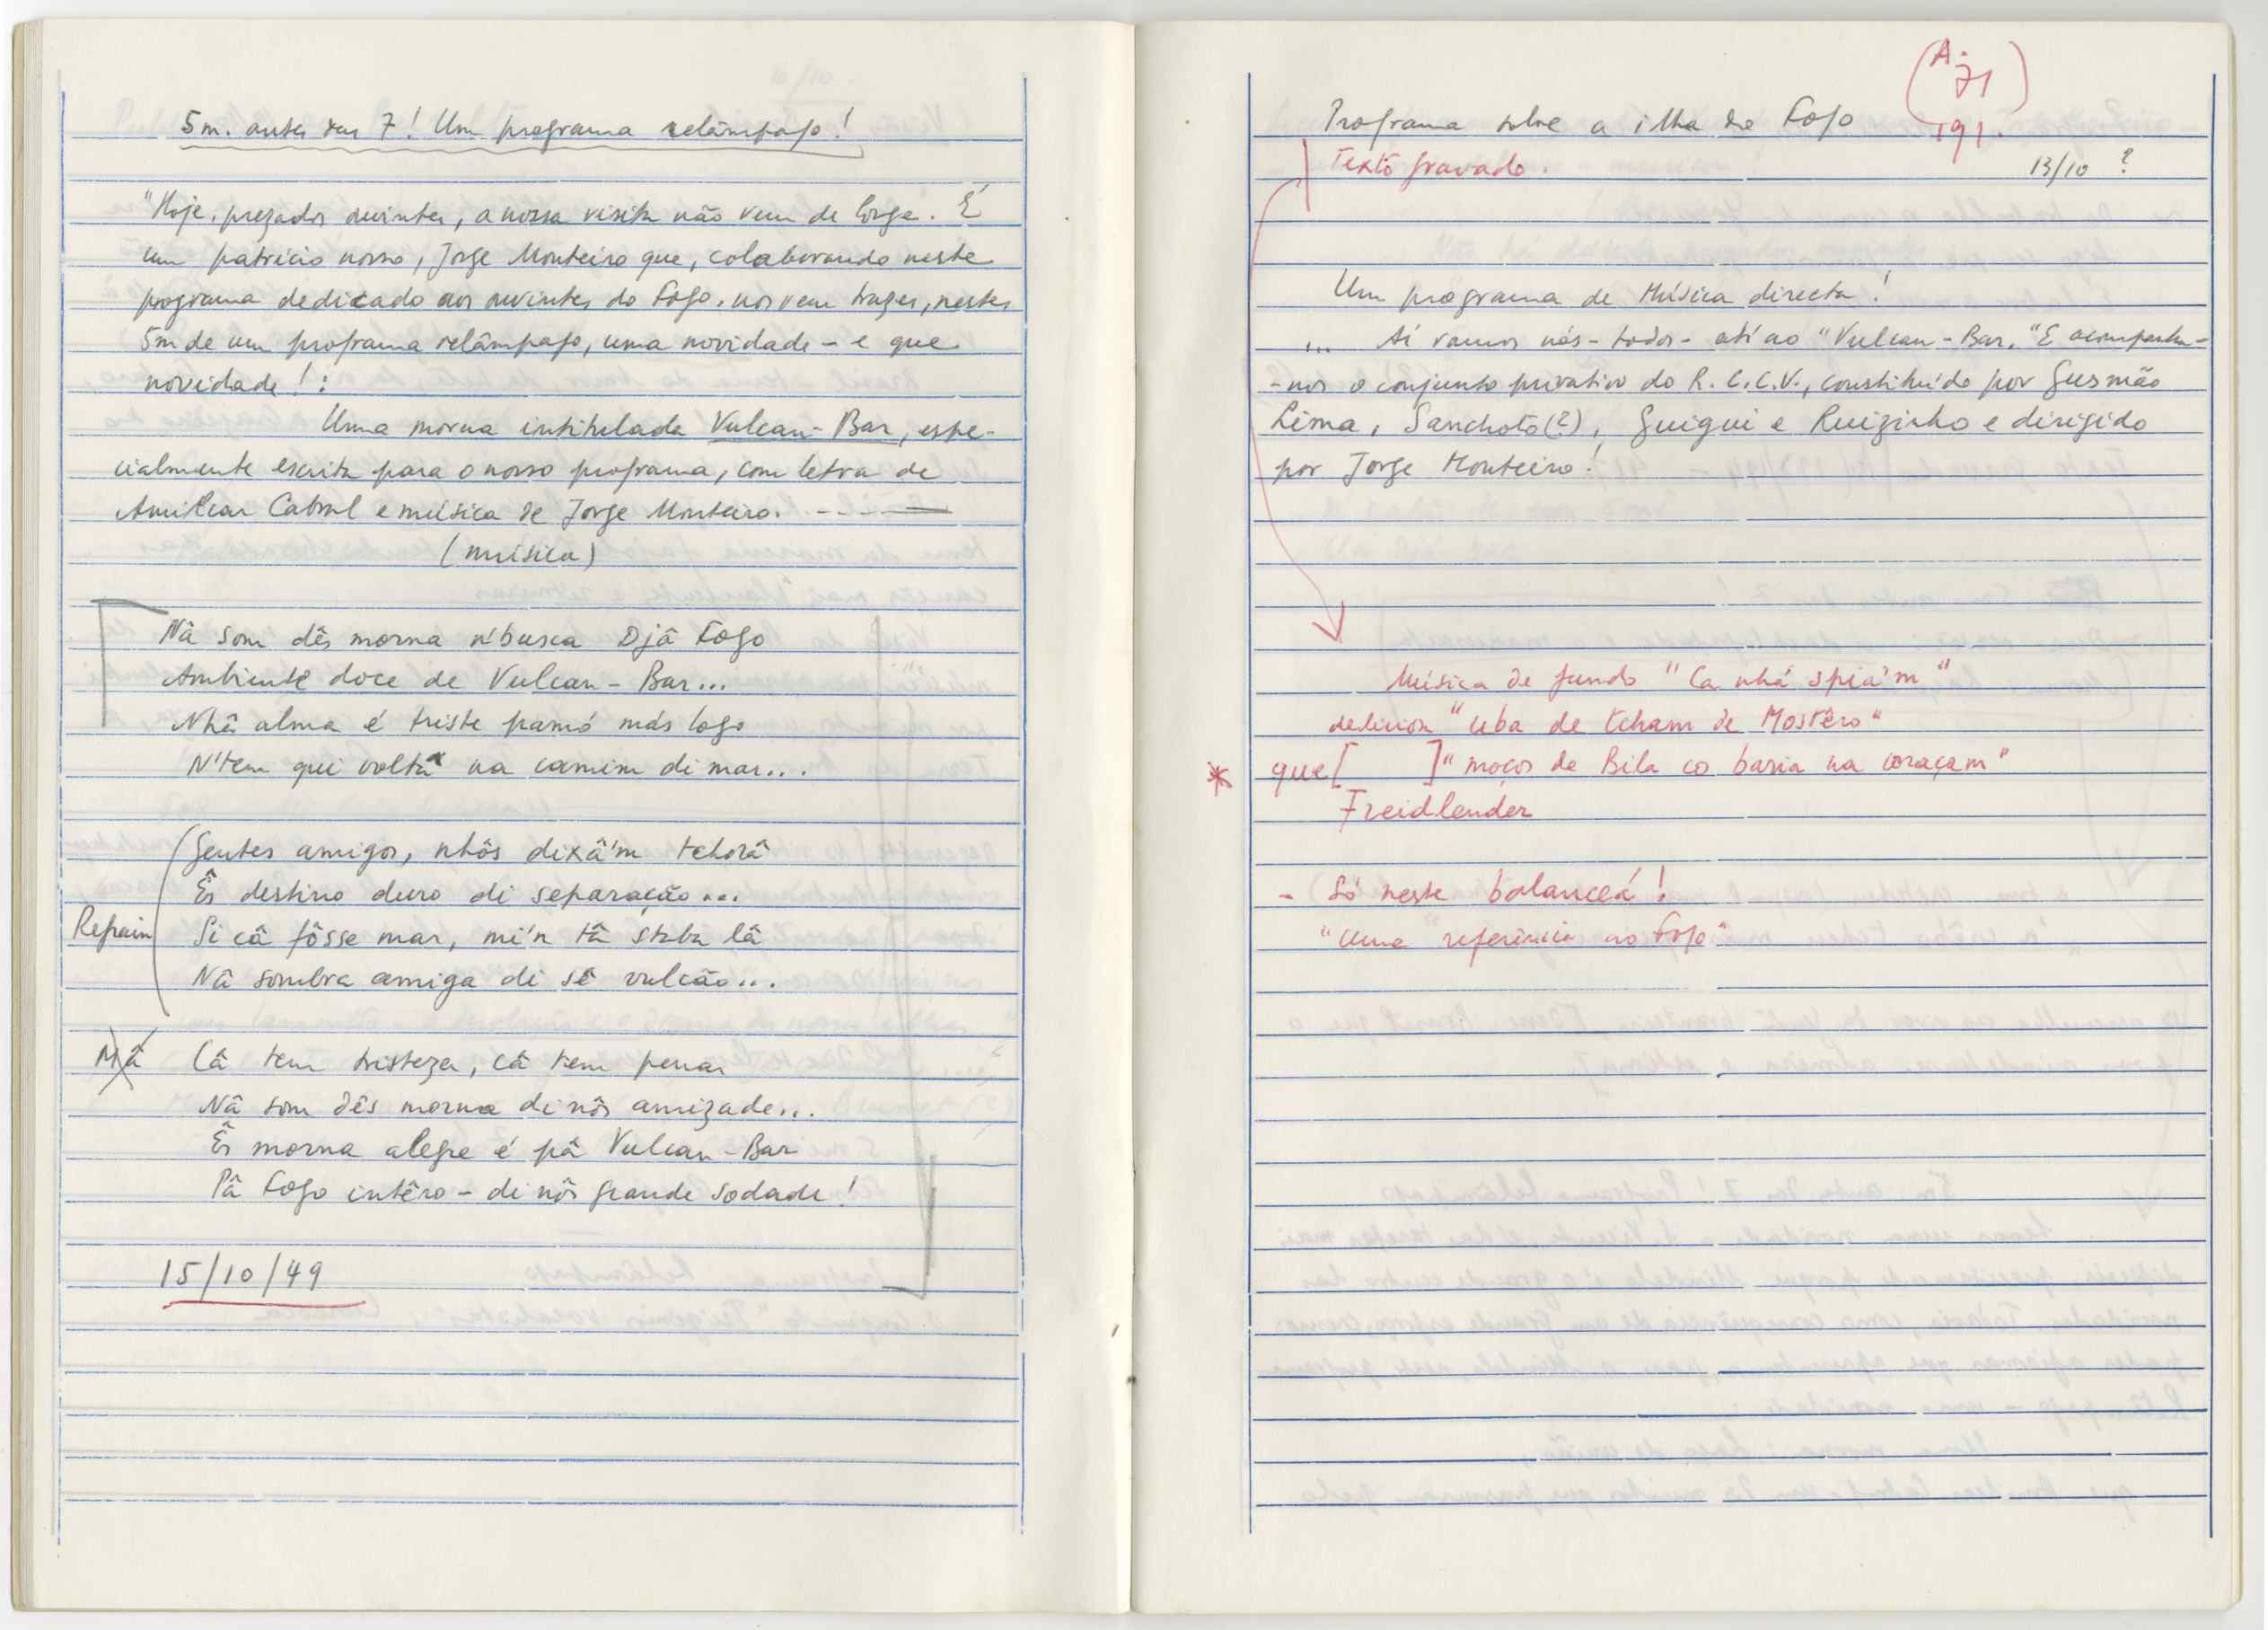 5m. antes das 7! Um programa relâmpago!
"Hoje, prezados ouvintes, a nossa visita não vem de longe. É
um patrício nosso, Jorge Monteiro que, colaborando neste
programa dedicado aos ouvintes do Fogo, nos vem trazer, nestes
5m de um programa relâmpago, uma novidade - e que
novidade!:
Uma morna intitulada Vulcan-Bar, espe-
cialmente escrita para o nosso programa, com letra de
Amílcar Cabral e música de Jorge Monteiro. - - - -
(música)
Nâ som dês morna n'busca Djâ Fogo
Ambiente doce de Vulcan-Bar...
Nhâ alma é triste pamó más logo
N'tem qui voltâ na camim di mar...
Gentes amigos, nhôs dixâ'm tchorâ
Ês destino duro di separação...
Refrain Si câ fôsse mar, mi'n tâ staba lâ
Nâ sombra amiga di sê vulcão...
Mâ Câ tem tristeza, câ tem penar
Nâ som dês morna di nôs amizade...
Ês morna alegre é pâ Vulcan-Bar
Pâ Fogo intêro - di nôs grande sodade!
15/10/49
Programa sobre a ilha do Fogo
(A. 71 191.)
Texto gravado.
13/10 ?
Um programa de Música directa!
... Aí vamos nós - todos - até ao "Vulcan-Bar." E acompanha-
-nos o conjunto privativo do R.C.C.V., constituído por Gusmão
Lima, Sanchoto(?), Guigui e Ruizinho e dirigido
por Jorge Monteiro!
Música de fundo "Ca nhá spiá'm"
"uba de tcham de Mostêro"
* que [ ] "moços de Bila co baria na coraçam"
Freidlender
- Só neste balanceá!
"Uma referência ao Fogo"